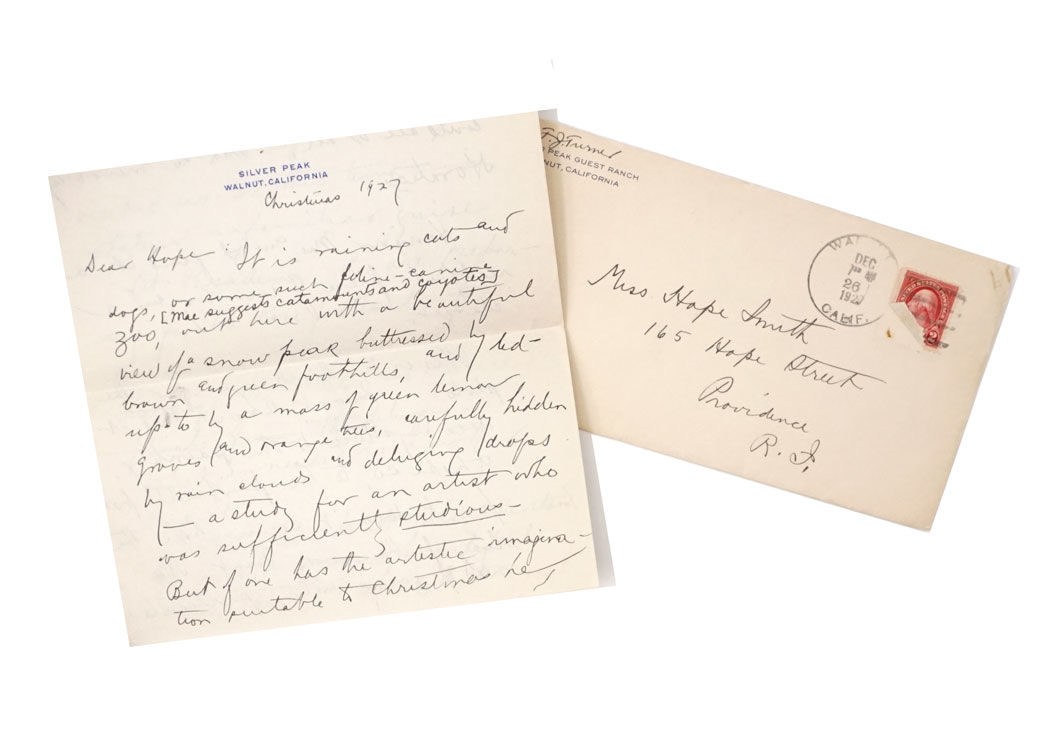 SILVER PEAK
WALNUT, CALIFORNIA
Christmas 1927
Dear Hope: It is raining cats and
dogs, or some such feline-canine
[Mae suggests catamounts and coyotes]
zoo, out here with a beautiful
view of a snow peak buttressed by
brown and green foothills, and led-
up-to by a mass of green lemon
groves and orange trees, carefully hidden
by rain clouds and deluging drops.
— a study for an artist who
was sufficiently studious —
But if one has the artistic imagina-
tion suitable to Christmas he,
F. J. Turner
PEAK GUEST RANCH
NUT, CALIFORNIA
WA
DEC
26
1927
CALIF.
Miss Hope Smith
165 Hope Street
Providence
R. I.
2